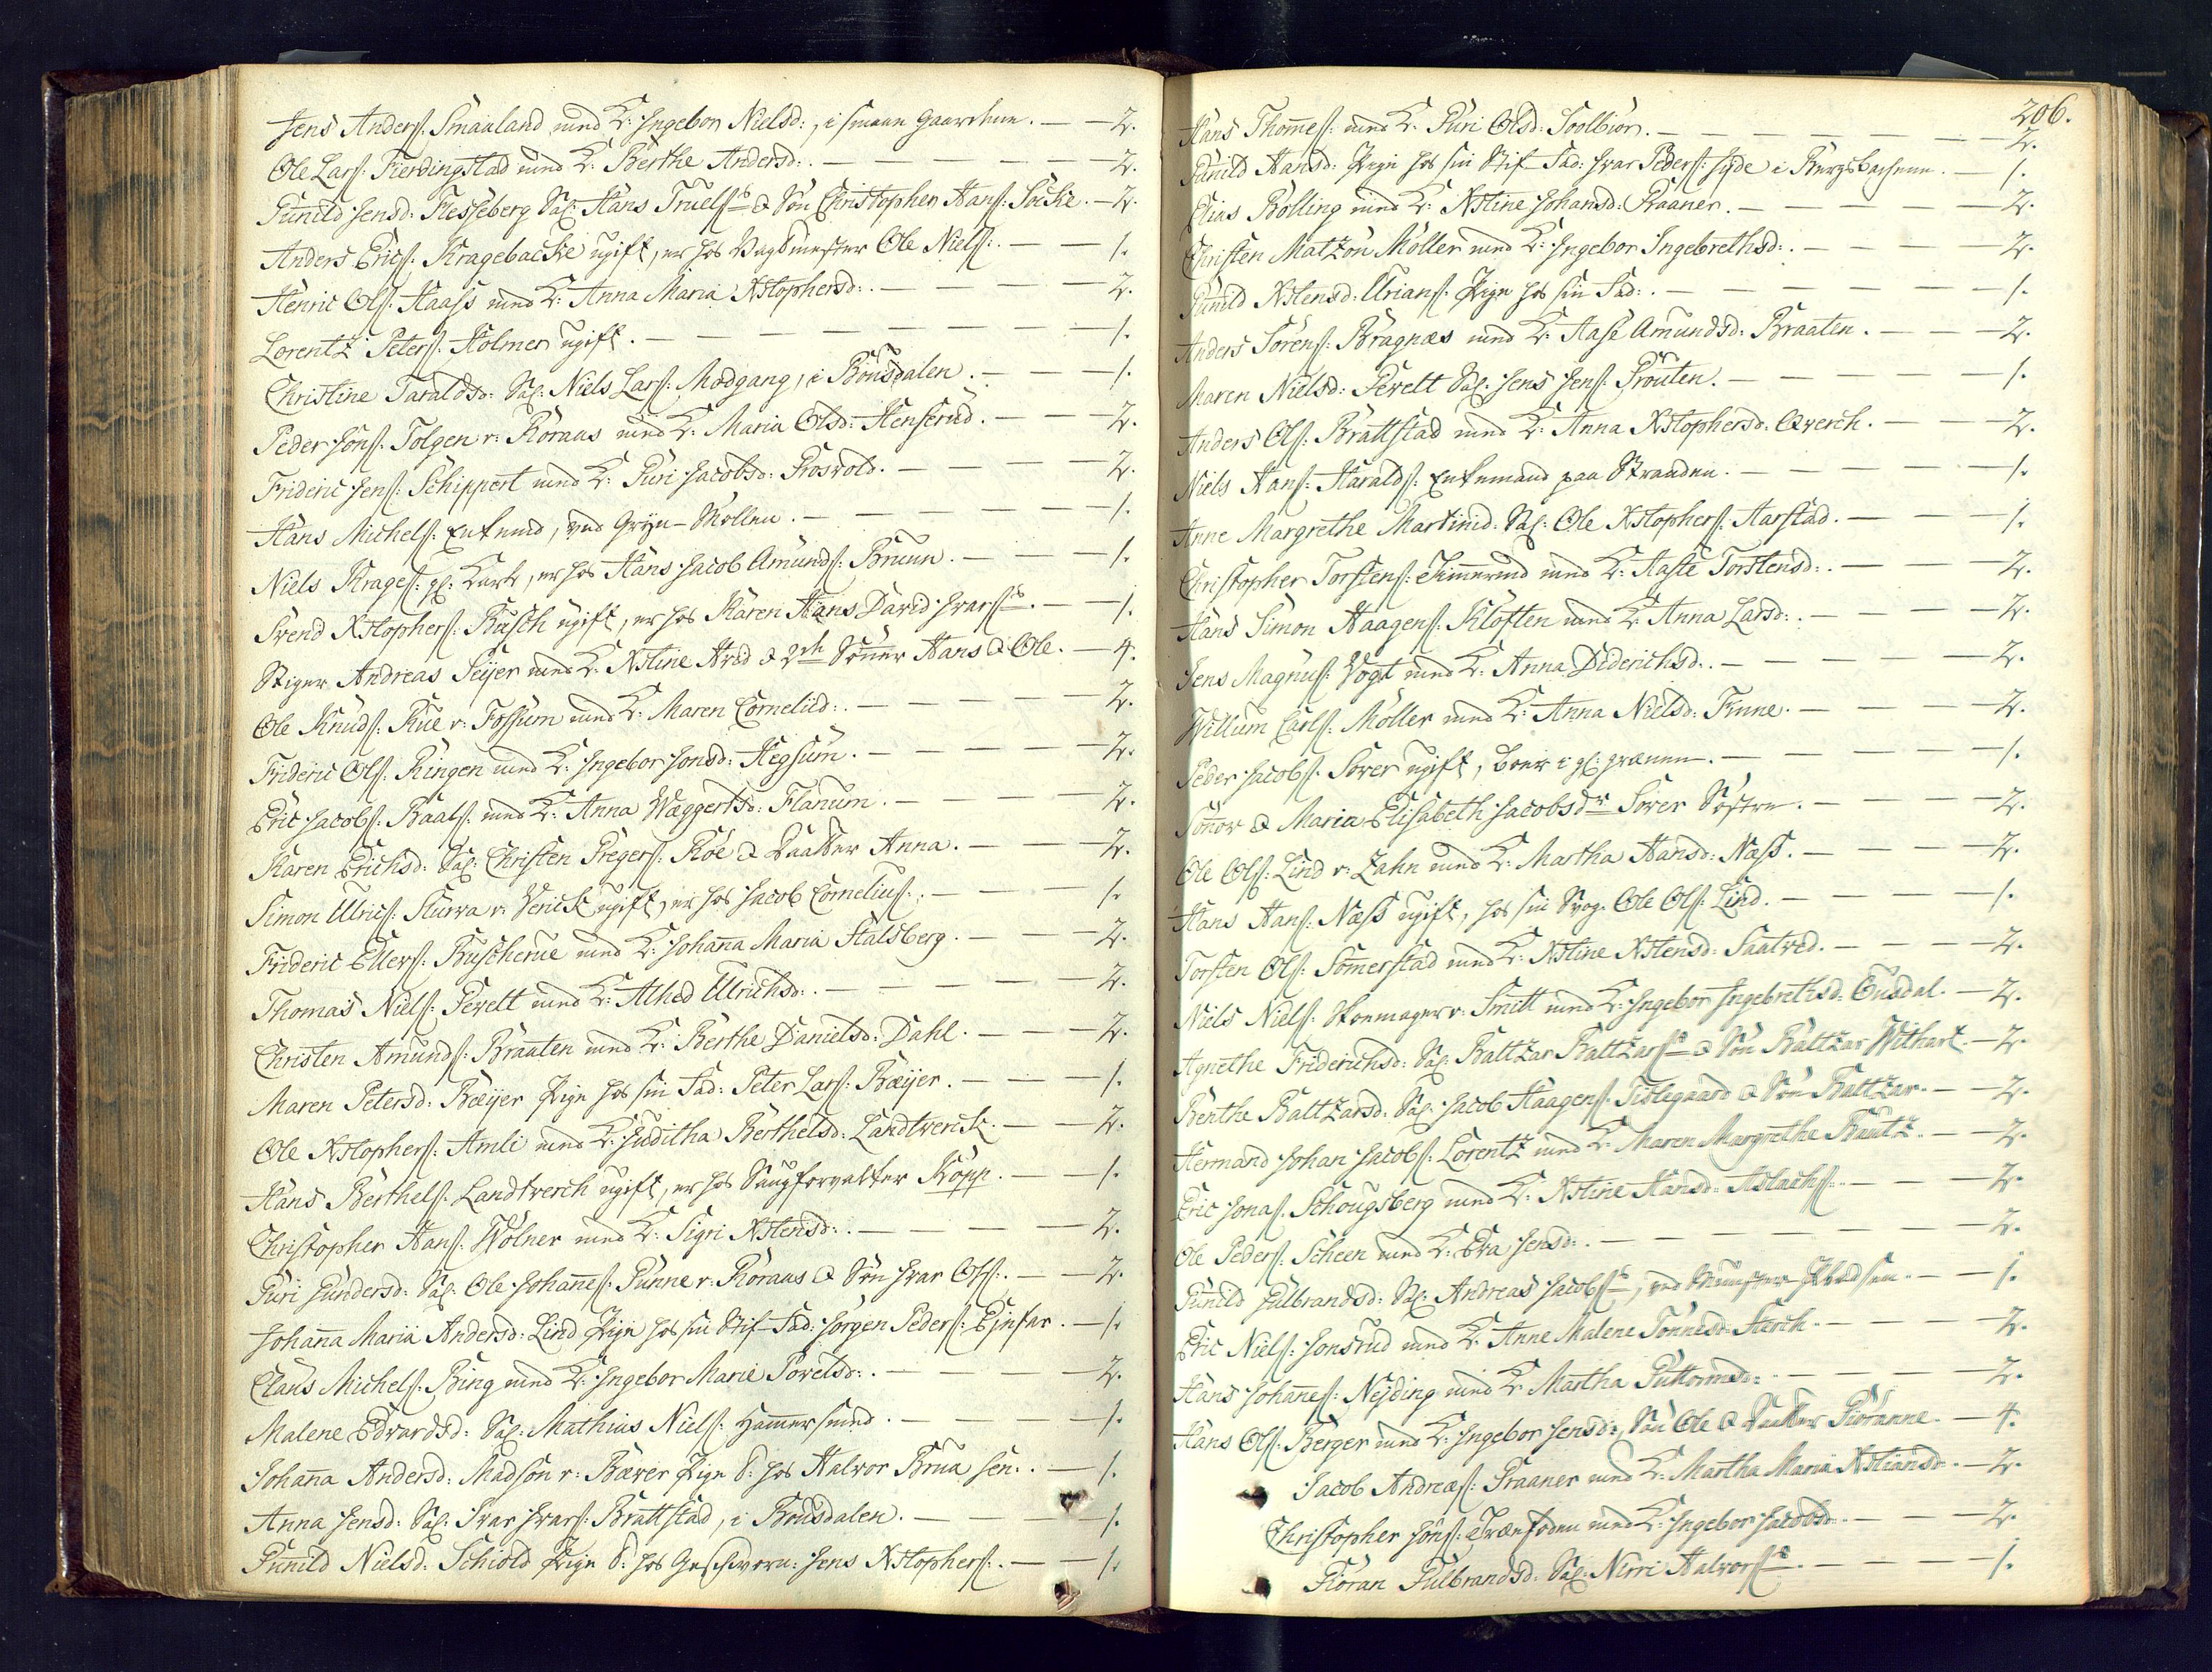 Jens Anders: Smaaland med K: Ingebor Nielsd:, i smaae gaardene. — 2.
Ole Lars: Fierdingstad med K: Berthe Andersd: — 2.
Gunild Jensd: Flesseberg Sal: Hans Truels: & Søn Christopher Hans: Socke. — 2.
Anders Erics: Kragebacke ugift, er hos Ole Niels: — 1.
Henric Ols: Haass med K: Anna Maria Xstophersd: — 2.
Lorentz Peters: Holmer ugift. — 1.
Christine Taraldsd: Sal: Niels Lars: Modgang, i Bonsdalen. — 1.
Peder Jons: Tolgen v: Roraas med K: Maria Olsd: Henserud. — 2.
Frideric Jens: Schippert med K: Guri Jacobsd: Rosvold. — 2.
Hans Michels: Enkemd, ved Gryn-Møllen. — 1.
Niels Krages: gl: Karl, er hos Hans Jacob Amunds: Bruun. — 1.
Svend Xstophers: Busch ugift, er hos Karen Hans David Ivars: — 1.
Stiger Andreas Seyer med K: Xstine Arvd & 2de Sønner Hans & Ole. — 4.
Ole Knuds: Rue v: Fossum med K: Maren Cornelild: — 2.
Frideric Ols: Ringen med K: Ingebor Jonsd: Hegsum. — 2.
Eric Jacobs: Baals: med K: Anna Wæggertsd: Flanum. — 2.
Karen Erichsd: Sal: Christen Gregers: Roe & Daatter Anna. — 2.
Simon Ulrics: Skurra v: Verick ugift, er hos Jacob Cornelius: — 1.
Frideric Ellers: Buscherue med K: Johana Maria Halsberg. — 2.
Thomas Niels: Perelt med K: Alhed Ulrichsd: — 2.
Christen Amunds: Braaten med K: Berthe Danielsd: Dahl. — 2.
Maren Petersd: Bæyer Pige hos sin Fad: Peter Lars: Bæyer. — 1.
Ole Xstophers: Amli med K: Juditha Berthelsd: Landtverck. — 2.
Hans Berthels: Landtverch ugift, er hos Saugforvalter Kopp. — 1.
Christopher Hans: Wolner med K: Sigri Xstensd: — 2.
Guri Gundersd: Sal: Ole Johannes: Gunne v: Roraas & Søn Ivar Ols: — 2.
Johana Maria Andersd: Lind Pige hos sin Stif-Fad: Jørgen Peders: Ejnfar. — 1.
Claus Michels: Bing med K: Ingebor Marie Povelsd: — 2.
Malene Edvardsd: Sal: Mathias Niels: Hammersmed. — 1.
Johana Andersd: Madson v: Bæver Pige S: hos Halvor Brua sen: — 1.
Anna Jensd: Sal: Ivar Ivars: Brattstad, i Bonsdalen. — 1.
Gunild Nielsd: Schiold Pige S: hos Geschworn: Jens Xstophers: — 1.
206.
Hans Thomes: med K: Guri Olsd: Soolbiør. — 2.
Gunild Hansd: Pige hos sin Stif-Fad: Ivar Peders: Hyde i Bergsbachene. — 1.
Elias Bolling med K: Xstine Johansd: Raaner. — 2.
Christen Matzon Møller med K: Ingebor Ingebrethsd: — 2.
Gunild Xstensd: Urians: Pige hos sin Fad: — 1.
Anders Sorens: Bragnæs med K: Aase Amundsd: Braaten. — 2.
Maren Nielsd: Perelt Sal: Jens Jens: Grouten. — 1.
Anders Ols: Brattstad med K: Anna Xstophersd: Qverch. — 2.
Niels Hans: Haralds: Enkemand paa Stranden. — 1.
Anne Margrethe Martinid: Sal: Ole Xstophers: Aarstad. — 1.
Christopher Torstens: Timmermd med K: Aaste Torstensd: — 2.
Hans Simon Haagens: Kloften med K: Anna Larsd: — 2.
Jens Magnus: Vogt med K: Anna Diderichsd: — 2.
Willum Carls: Møller med K: Anna Nielsd: Funne. — 2.
Peder Jacobs: Sorer ugift, boer i gl: grænen. — 1.
Sonov & Maria Elisabeth Jacobsdr Sorer Søstre. — 2.
Ole Ols: Lind v: Zahn med K: Martha Hansd: Næss. — 2.
Hans Hans: Næss ugift, hos sin Svog: Ole Ols: Lind. — 1.
Torsten Ols: Somerstad med K: Xstine Xstensd: Saatved. — 2.
Niels Niels: Skoemager v: Smitt med K: Ingebor Ingebrethsd: Gusdal. — 2.
Agnethe Friderichsd: Sal: Baltzar Baltzars: & Søn Baltzar Withart. — 2.
Benthe Baltzarsd: Sal: Jacob Haagens: Tislegaard & Søn Baltzar. — 2.
Hermand Johan Jacobs: Lorentz med K: Maren Margrethe Bautz. — 2.
Eric Jonas: Schougsberg med K: Xstine Hansd: Aslachs: — 2.
Ole Peders: Scheen med K: Eva Jensd: — 2.
Gunild Gulbrandsd: Sal: Andreas Jacobs:, ved — 1.
Eric Niels: Jonsrud med K: Anne Malene Tonnesd: Starch. — 2.
Hans Johannes: Neyding med K: Martha Guttormsd: — 2.
Hans Ols: Berger med K: Ingebor Jensd: Søn Ole & Daatter Gioranne. — 4.
Jacob Andreas: Graaner med K: Martha Maria Xstiansd: — 2.
Christopher Jons: Trænfoden med K: Ingebor Jacobsd: — 2.
Gioran Gulbrandsd: Sal: Nirri Halvors: — 1.